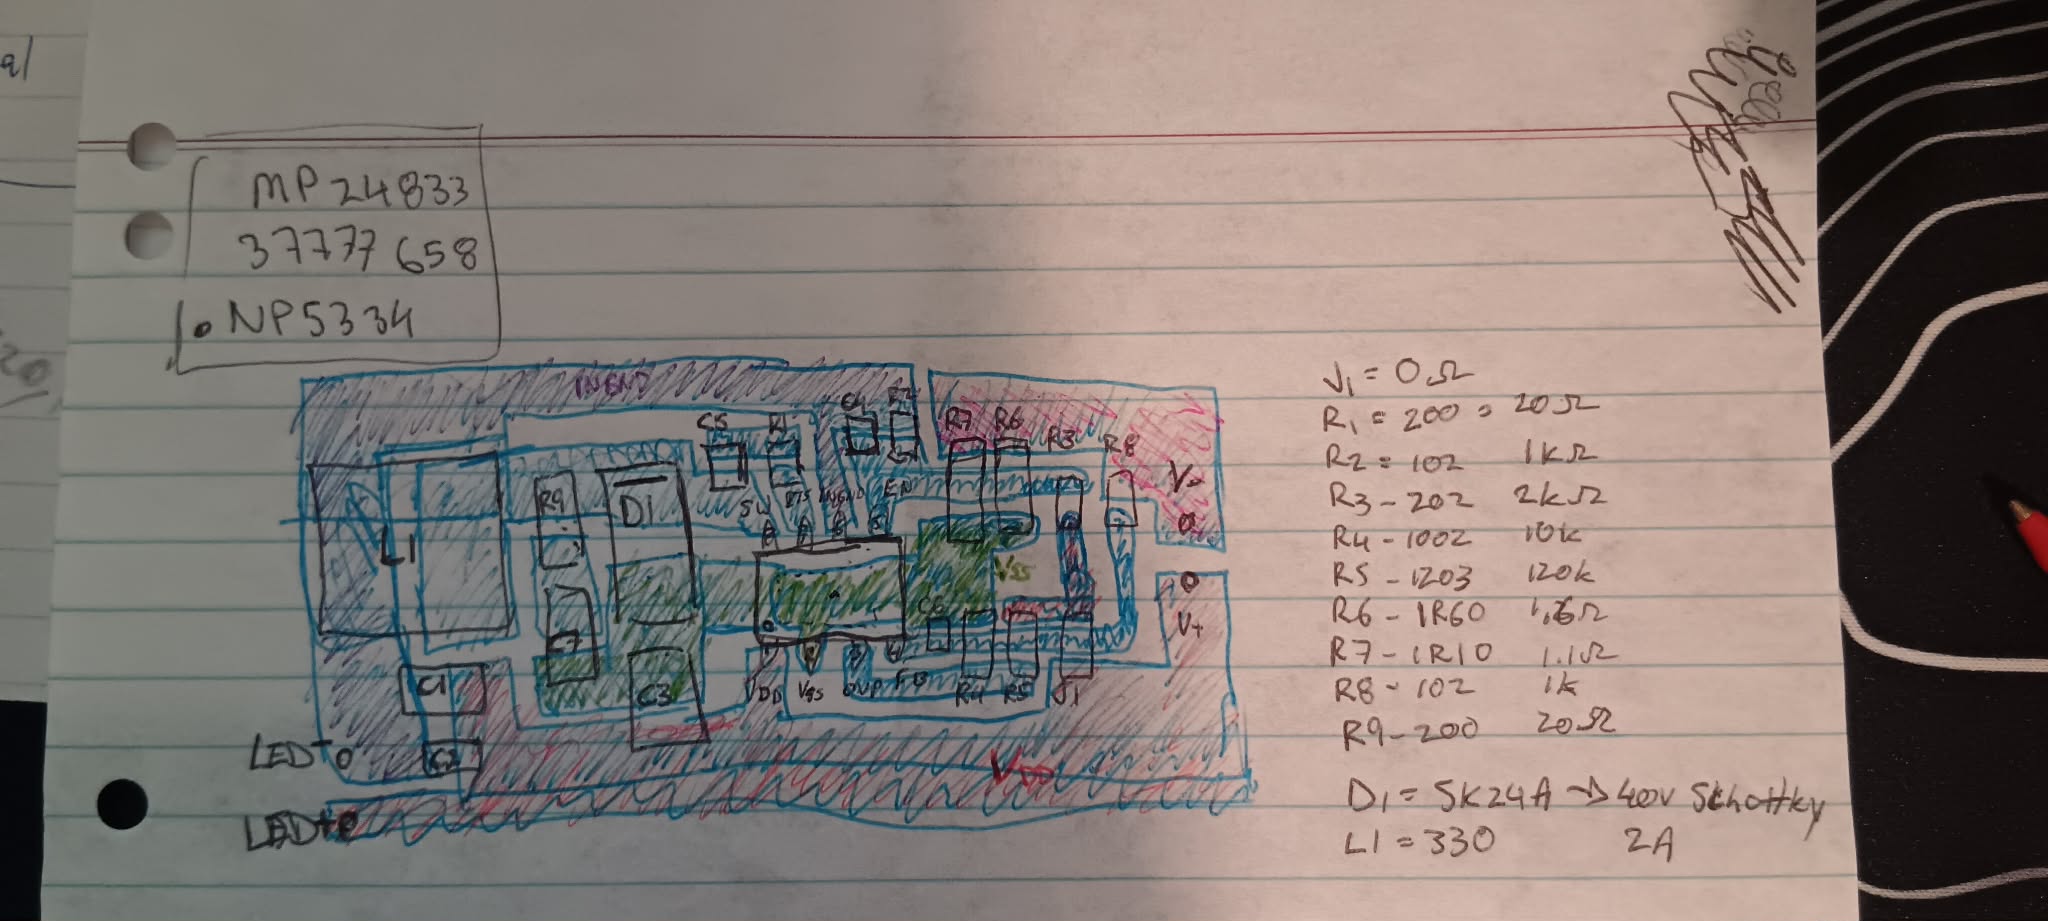 a/
20
MP24833
37777 658
NP5334
INGND
C5
R1
C4
R2
R7
R6
R3
R8
V-
SW
BTS
INGND
EN
R9
D1
L1
VSS
V+
C6
C7
C1
C3
VDD
VSS
OVP
FB
R4
R5
J1
LED-
C2
VDD
LED+
J1 = 0Ω
R1 = 200 = 20Ω
R2 = 102 1kΩ
R3 - 202 2kΩ
R4 - 1002 10k
R5 - 1203 120k
R6 - 1R60 1.6Ω
R7 - 1R10 1.1Ω
R8 - 102 1k
R9 - 200 20Ω
D1 = SK24A → 40V Schottky
L1 = 330 2A